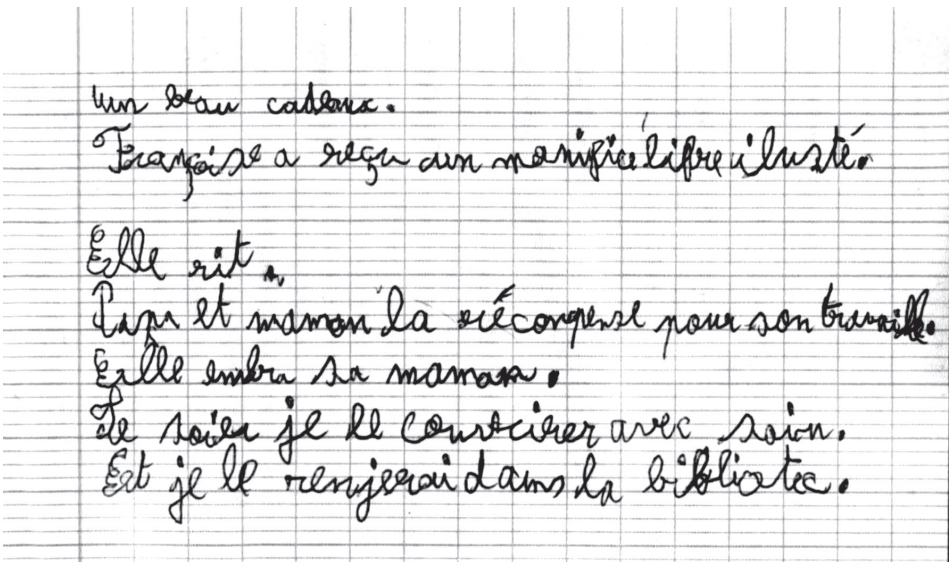 un beau cadeaux.
Françoise a reçu un manifice lifre ilusté.
Elle rit.
Papa et maman la récompense pour son travaille.
Elle embra sa maman.
Le soier je le couvrirer avec soin.
Est je le renjerai dans la bibliotec.